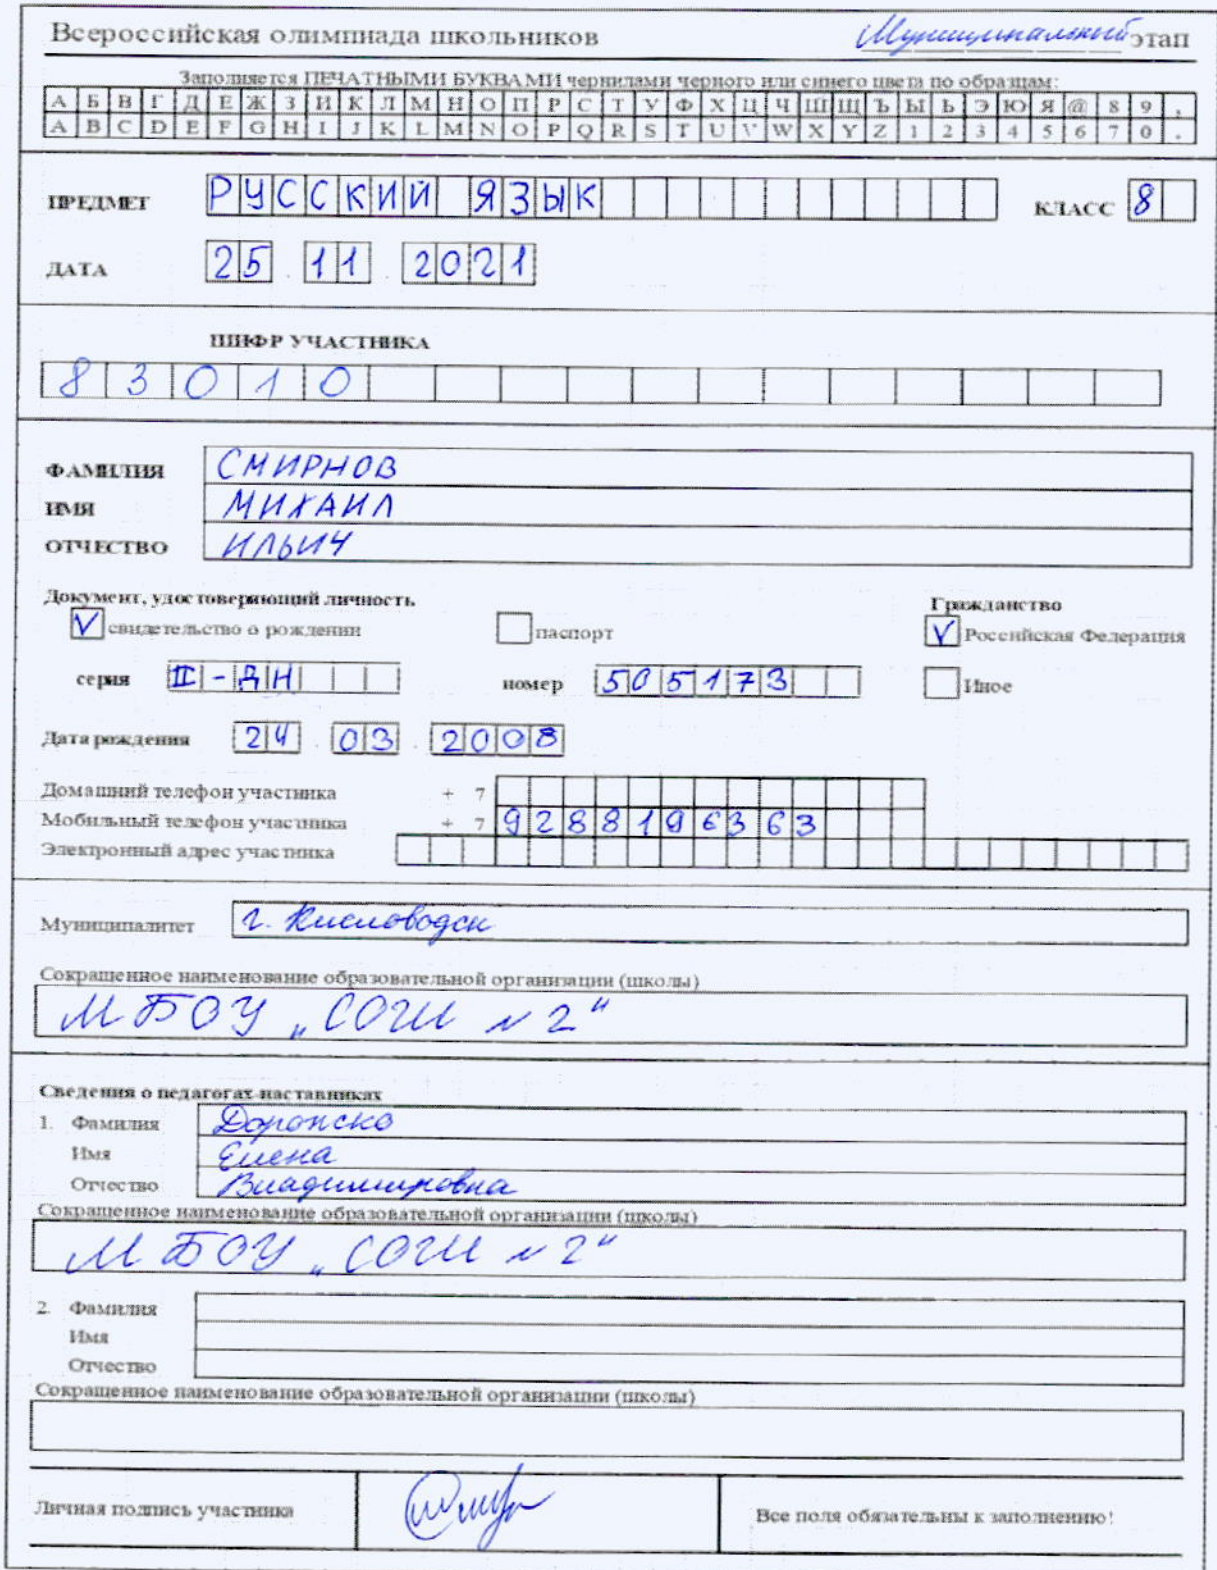 Всероссийская олимпиада школьников Муниципальный этап
Заполняется ПЕЧАТНЫМИ БУКВАМИ чернилами черного или синего цвета по образцам:
А Б В Г Д Е Ж З И К Л М Н О П Р С Т У Ф Х Ц Ч Ш Щ Ъ Ы Ь Э Ю Я @ 8 9 ,
A B C D E F G H I J K L M N O P Q R S T U V W X Y Z 1 2 3 4 5 6 7 0 .
ПРЕДМЕТ РУССКИЙ ЯЗЫК КЛАСС 8
ДАТА 25.11.2021
ШИФР УЧАСТНИКА
83010
ФАМИЛИЯ СМИРНОВ
ИМЯ МИХАИЛ
ОТЧЕСТВО ИЛЬИЧ
Документ, удостоверяющий личность Гражданство
V свидетельство о рождении паспорт V Российская Федерация
серия II-ДН номер 505173 Иное
Дата рождения 24.03.2008
Домашний телефон участника + 7
Мобильный телефон участника + 7 9288196363
Электронный адрес участника
Муниципалитет г. Кисловодск
Сокращенное наименование образовательной организации (школы)
МБОУ „СОШ №2"
Сведения о педагогах-наставниках
1. Фамилия
Имя Елена
Отчество Владимировна
Сокращенное наименование образовательной организации (школы)
МБОУ „СОШ №2"
2. Фамилия
Имя
Отчество
Сокращенное наименование образовательной организации (школы)
Личная подпись участника Все поля обязательны к заполнению!